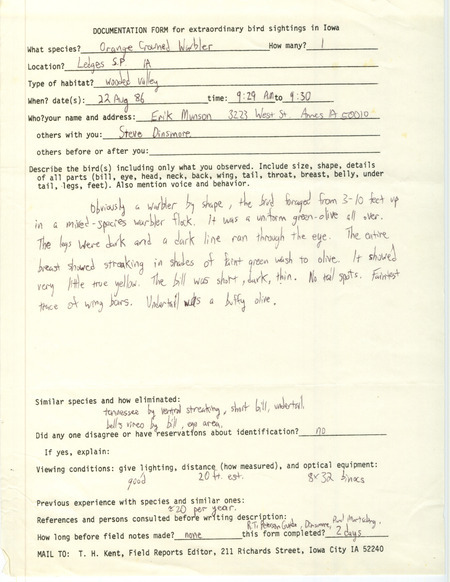 DOCUMENTATION FORM for extraordinary bird sightings in Iowa
What species? Orange Crowned Warbler How many? 1
Location? Ledges S.P. IA
Type of habitat? Wooded Valley
When? date(s): 22 Aug 86 time: 9:29 AM to 9:30
Who?your name and address: Erik Munson 3223 West St. Ames IA 50010
others with you: Steve Dinsmore
others before or after you:
Describe the bird(s) including only what you observed. Include size, shape, details
of all parts (bill, eye, head, neck, back, wing, tail, throat, breast, belly, under
tail, legs, feet). Also mention voice and behavior.
Obviously a warbler by shape, the bird foraged from 3-10 feet up
in a mixed-species warbler flock. It was a uniform green-olive all over.
The legs were dark and a dark line ran through the eye. The entire
breast showed streaking in shades of faint green wash to olive. It showed
very little true yellow. The bill was short, dark, thin. No tail spots. Faintest
trace of wing bars. Undertail was a buffy olive.
Similar species and how eliminated:
tennessee by ventral streaking, short bill, undertail.
bell's vireo by bill, eye area.
Did any one disagree or have reservations about identification? no
If yes, explain:
Viewing conditions: give lighting, distance (how measured), and optical equipment:
good 20 ft. est. 8x32 binocs
Previous experience with species and similar ones:
≈20 per year.
References and persons consulted before writing description:
R.T. Peterson Guide, Dinsmore, Paul
How long before field notes made? none this form completed? 2 days
MAIL TO: T. H. Kent, Field Reports Editor, 211 Richards Street, Iowa City IA 52240